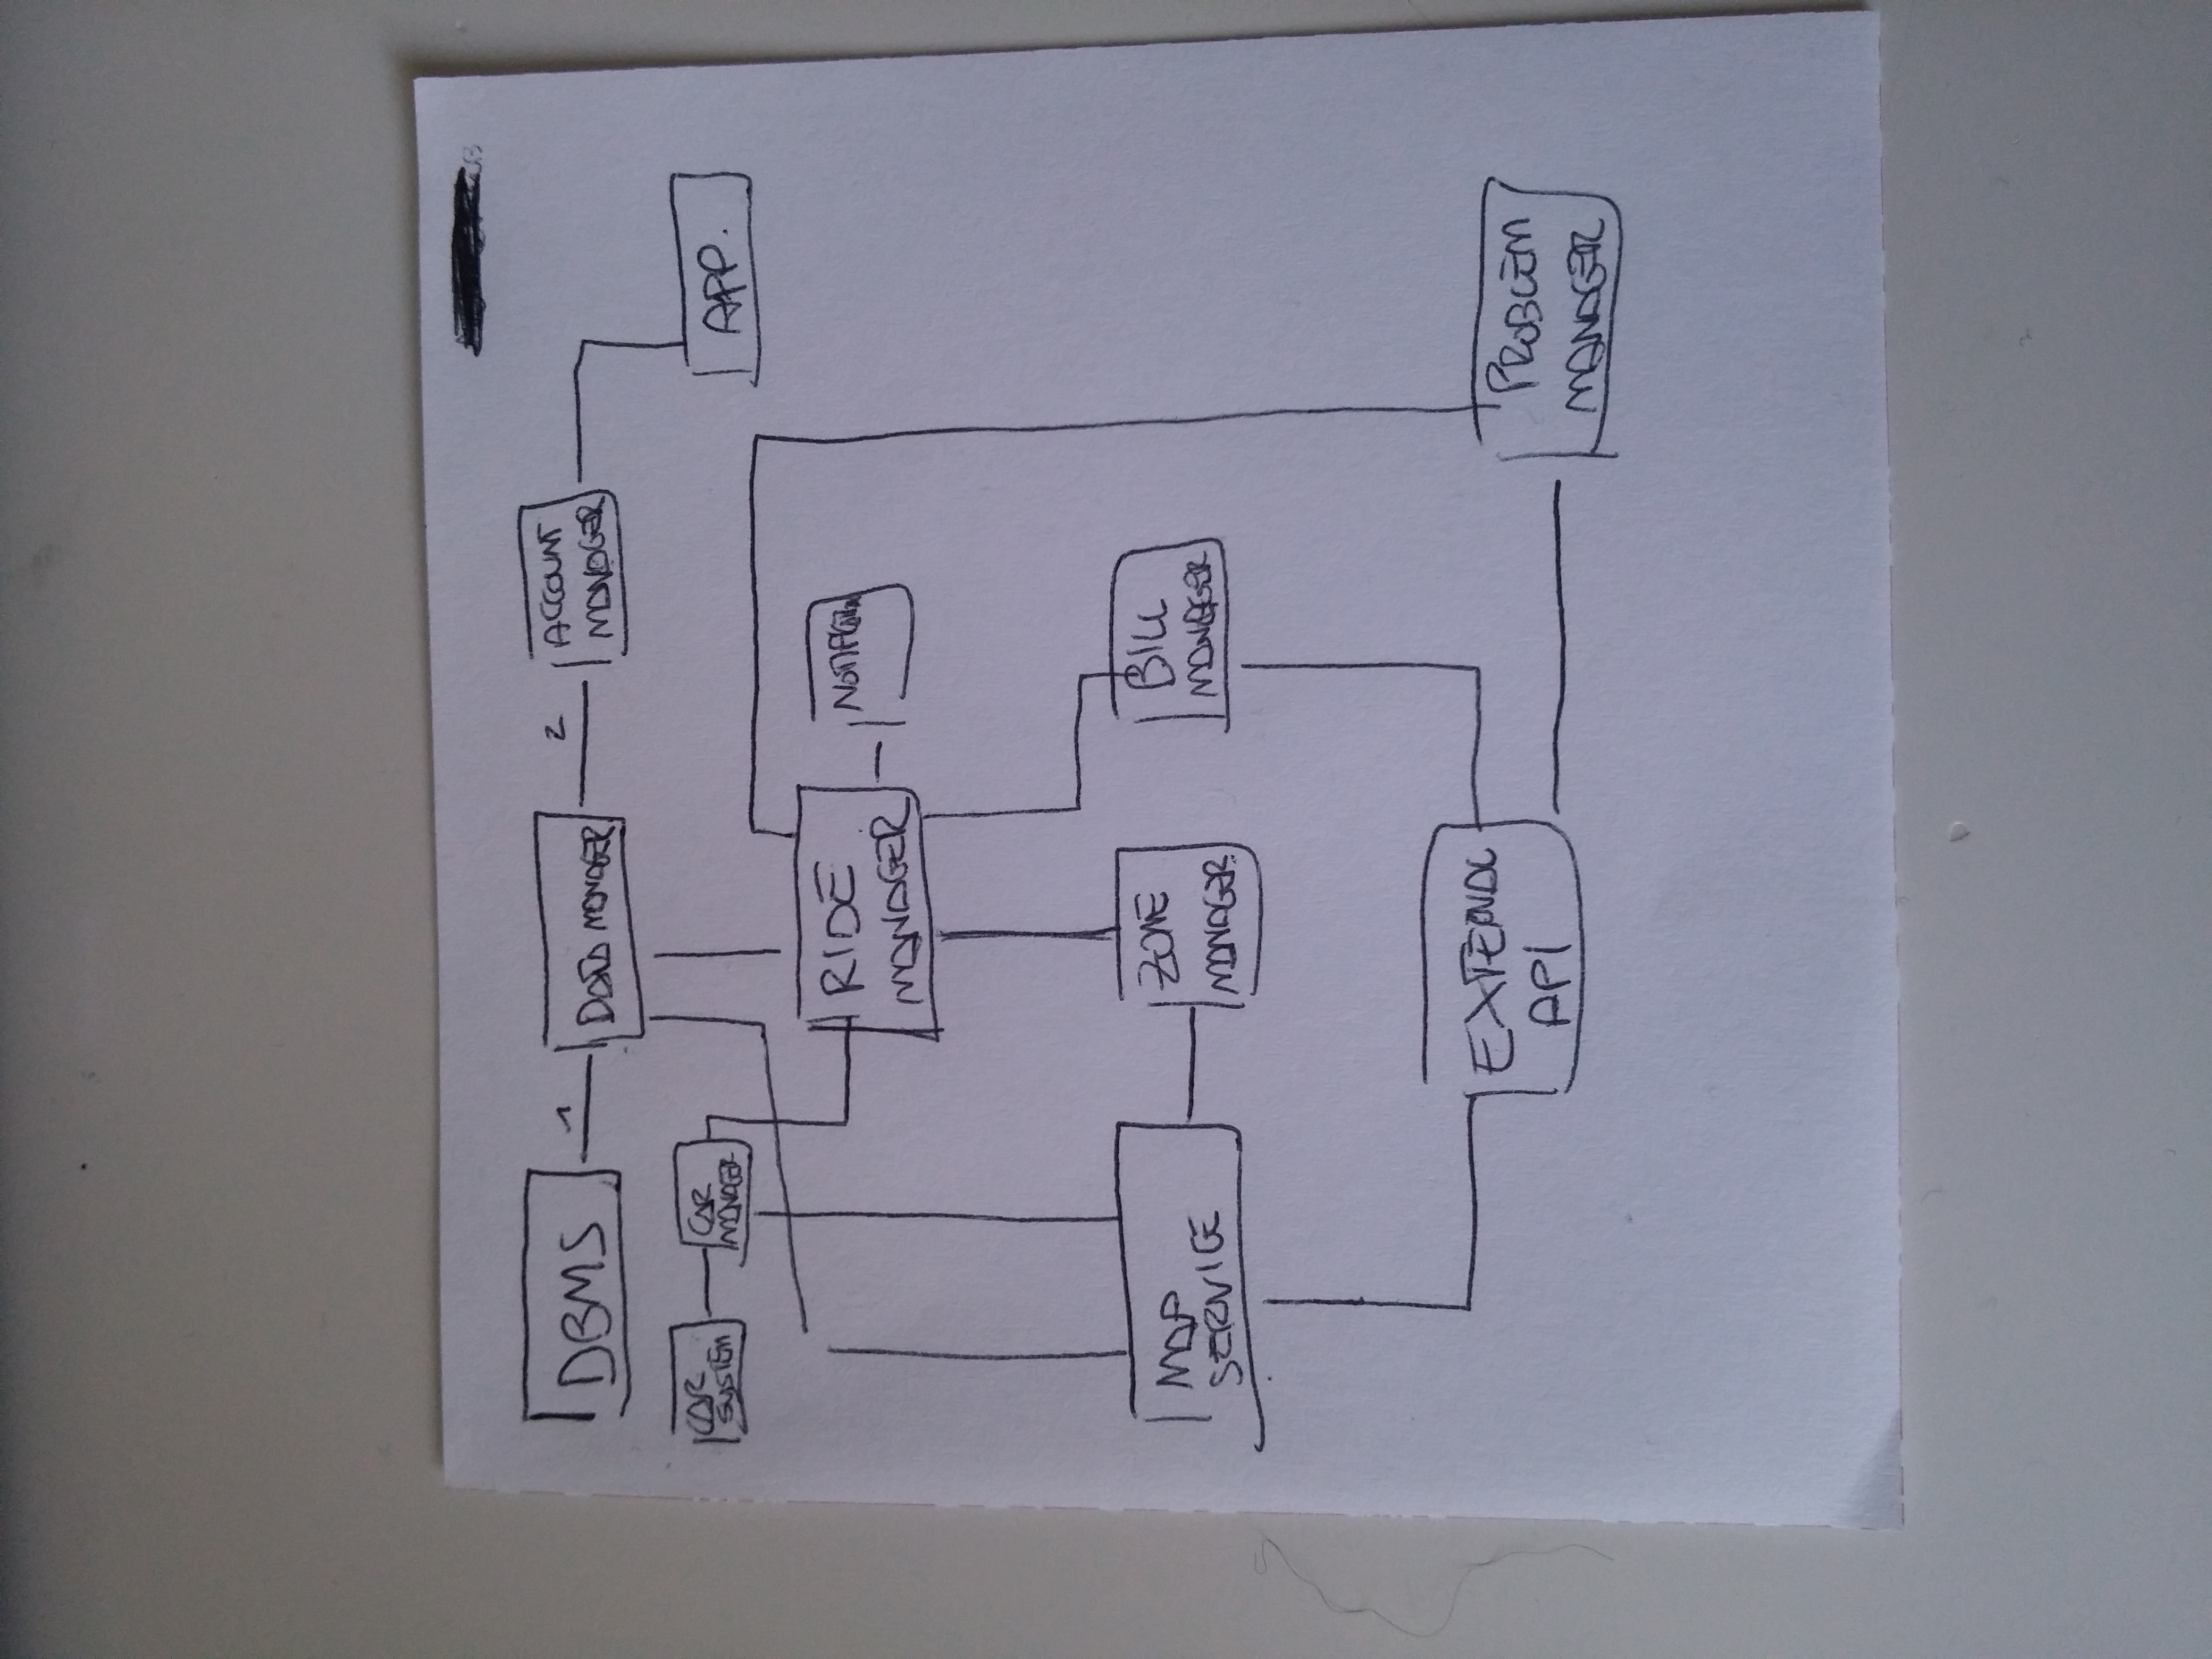 DBMS
1
DATA MANAGER
2
ACCOUNT
MANAGER
CAR
SYSTEM
CAR
MANAGER
APP.
RIDE
MANAGER
MAP
SERVICE
ZONE
MANAGER
BILL
MANAGER
EXTERNAL
API
PROBLEM
MANAGER